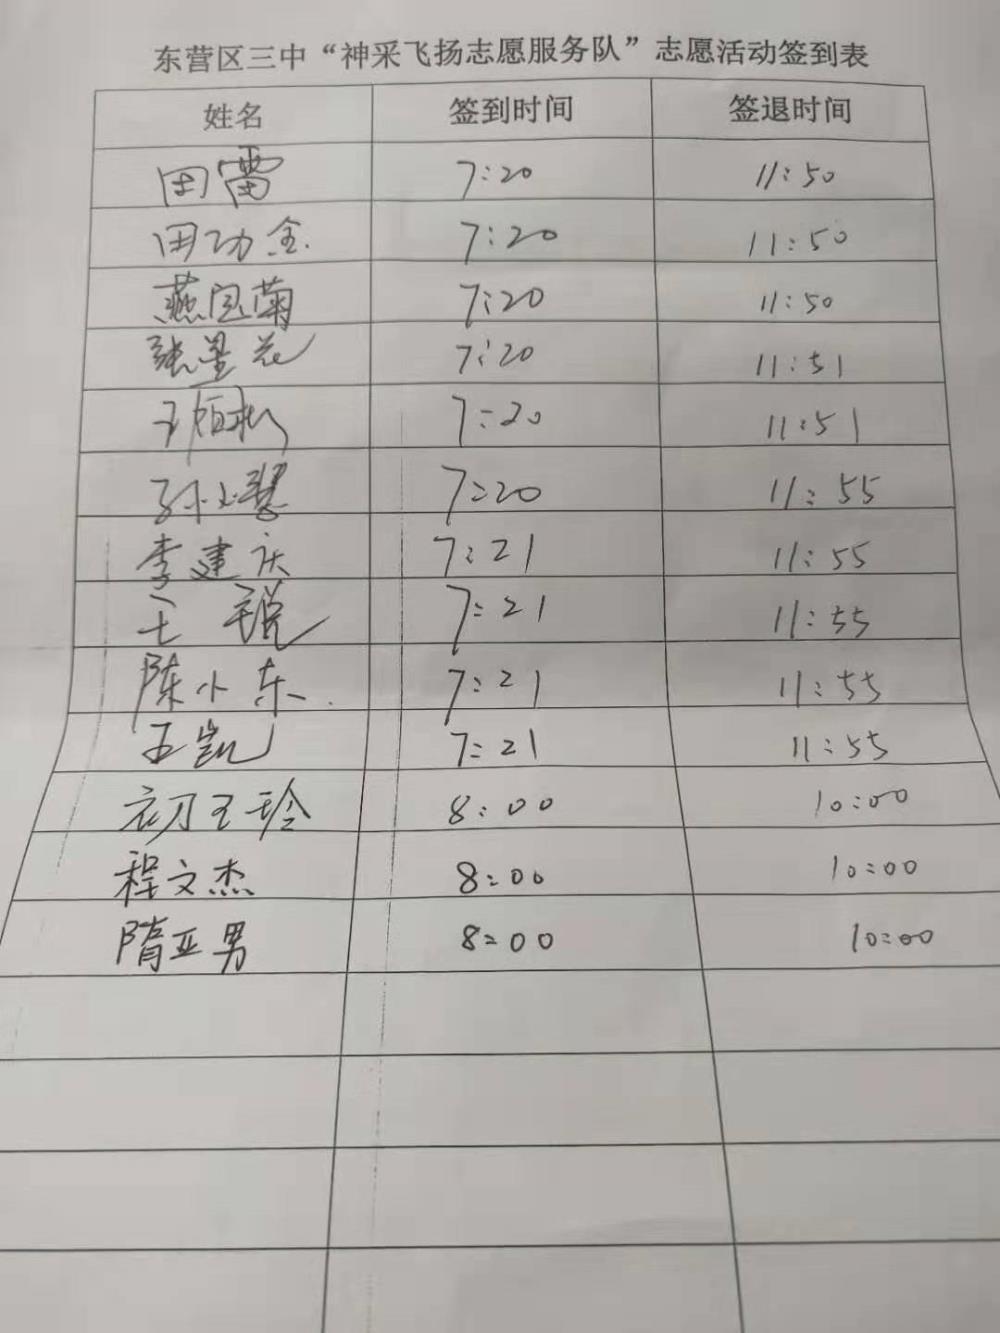 东营区三中“神采飞扬志愿服务队”志愿活动签到表
姓名 签到时间 签退时间
田雷 7:20 11:50
田功全. 7:20 11:50
燕宜菊 7:20 11:50
张星花 7:20 11:51
王 7:20 11:51
孙小琴 7:20 11:55
李建庆 7:21 11:55
王 锐 7:21 11:55
陈小东. 7:21 11:55
王凯 7:21 11:55
初玉玲 8:00 10:00
程文杰 8:00 10:00
隋亚男 8:00 10:00